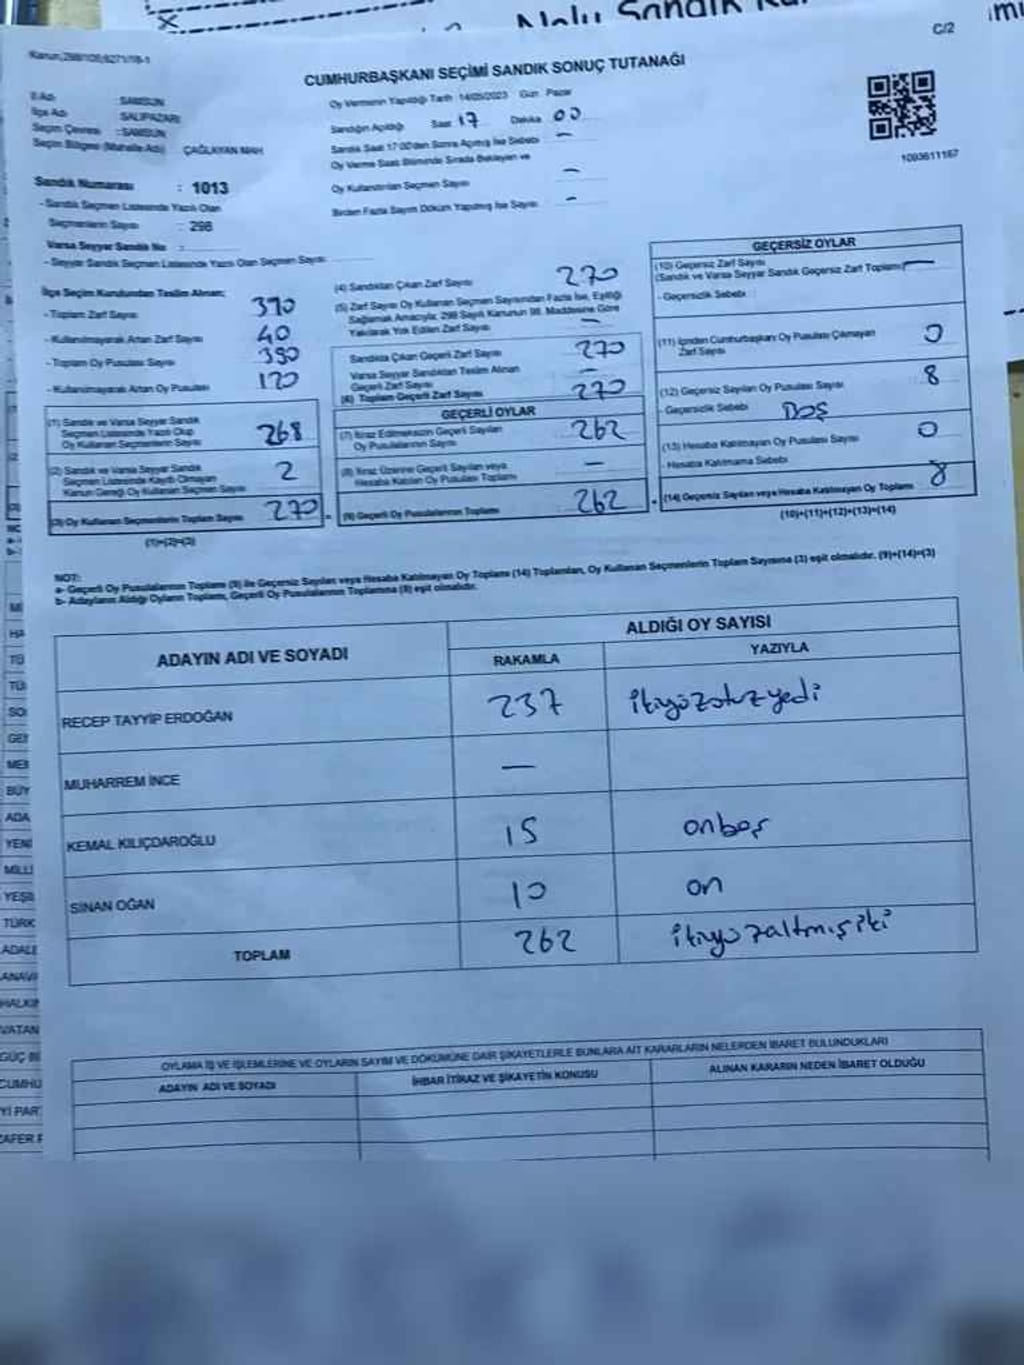 C/2
CUMHURBAŞKANI SEÇİMİ SANDIK SONUÇ TUTANAĞI
İl Adı : SAMSUN
İlçe Adı : SALIPAZARI
Seçim Çevresi : SAMSUN
Seçim Bölgesi (Mahalle Adı) ÇAĞLAYAN MAH
Oy Vermenin Yapıldığı Tarih 14/05/2023 Gün Pazar
Sandığın Açıldığı Saat 17 Dakika 00
Sandık Saat 17:00'den Sonra Açılmış İse Sebebi —
Oy Verme Saati Bitiminde Sırada Bekleyen ve
Oy Kullandırılan Seçmen Sayısı —
Birden Fazla Sayım Döküm Yapılmış İse Sayısı —
1093611167
Sandık Numarası : 1013
- Sandık Seçmen Listesinde Yazılı Olan
Seçmenlerin Sayısı : 298
Varsa Seyyar Sandık No :
- Seyyar Sandık Seçmen Listesinde Yazılı Olan Seçmen Sayısı
İlçe Seçim Kurulundan Teslim Alınan;
- Toplam Zarf Sayısı
- Kullanılmayarak Artan Zarf Sayısı 40
- Toplam Oy Pusulası Sayısı
- Kullanılmayarak Artan Oy Pusulası 120
(1) Sandık ve Varsa Seyyar Sandık
Seçmen Listesinde Yazılı Olup
Oy Kullanan Seçmenlerin Sayısı 268
(2) Sandık ve Varsa Seyyar Sandık
Seçmen Listesinde Kayıtlı Olmayan
Kanun Gereği Oy Kullanan Seçmen Sayısı 2
(3) Oy Kullanan Seçmenlerin Toplam Sayısı 270
(1)+(2)=(3)
(4) Sandıktan Çıkan Zarf Sayısı 270
(5) Zarf Sayısı Oy Kullanan Seçmen Sayısından Fazla İse, Eşitliği
Sağlamak Amacıyla, 298 Sayılı Kanunun 98. Maddesine Göre
Yakılarak Yok Edilen Zarf Sayısı —
Sandıkta Çıkan Geçerli Zarf Sayısı 270
Varsa Seyyar Sandıktan Teslim Alınan
Geçerli Zarf Sayısı —
(6) Toplam Geçerli Zarf Sayısı 270
GEÇERLİ OYLAR
(7) İtiraz Edilmeksizin Geçerli Sayılan
Oy Pusulalarının Sayısı 262
(8) İtiraz Üzerine Geçerli Sayılan veya
Hesaba Katılan Oy Pusulası Toplamı —
(9) Geçerli Oy Pusulalarının Toplamı 262
GEÇERSİZ OYLAR
(10) Geçersiz Zarf Sayısı
(Sandık ve Varsa Seyyar Sandık Geçersiz Zarf Toplamı) —
- Geçersizlik Sebebi :
(11) İçinden Cumhurbaşkanı Oy Pusulası Çıkmayan
Zarf Sayısı 0
(12) Geçersiz Sayılan Oy Pusulası Sayısı 8
- Geçersizlik Sebebi : Boş
(13) Hesaba Katılmayan Oy Pusulası Sayısı 0
- Hesaba Katılmama Sebebi :
(14) Geçersiz Sayılan veya Hesaba Katılmayan Oy Toplamı 8
(10)+(11)+(12)+(13)=(14)
NOT:
a- Geçerli Oy Pusulalarının Toplamı (9) ile Geçersiz Sayılan veya Hesaba Katılmayan Oy Toplamı (14) Toplamları, Oy Kullanan Seçmenlerin Toplam Sayısına (3) eşit olmalıdır. (9)+(14)=(3)
b- Adayların Aldığı Oyların Toplamı, Geçerli Oy Pusulalarının Toplamına (9) eşit olmalıdır.
ADAYIN ADI VE SOYADI
ALDIĞI OY SAYISI
RAKAMLA YAZIYLA
RECEP TAYYİP ERDOĞAN 237 ikiyüzotuzyedi
MUHARREM İNCE —
KEMAL KILIÇDAROĞLU 15 onbeş
SİNAN OĞAN 10 on
TOPLAM 262 ikiyüzaltmışiki
OYLAMA İŞ VE İŞLEMLERİNE VE OYLARIN SAYIM VE DÖKÜMÜNE DAİR ŞİKAYETLERLE BUNLARA AİT KARARLARIN NELERDEN İBARET BULUNDUKLARI
ADAYIN ADI VE SOYADI
İHBAR İTİRAZ VE ŞİKAYETİN KONUSU
ALINAN KARARIN NEDEN İBARET OLDUĞU